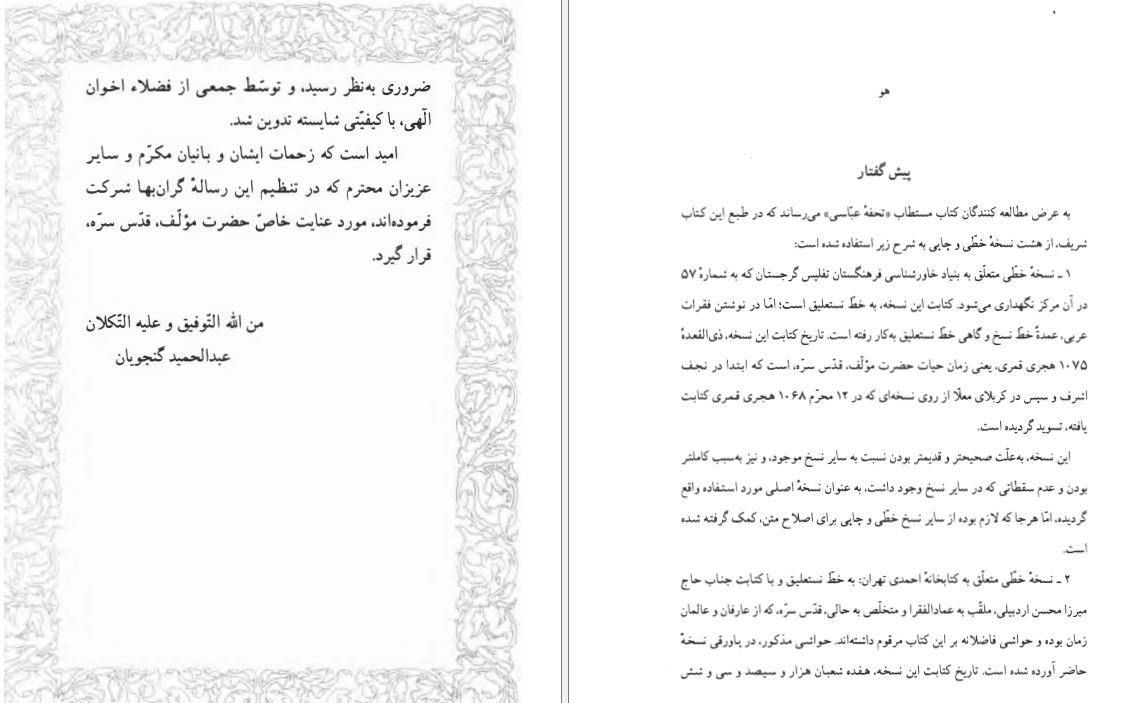 ضروری به‌نظر رسید، و توسّط جمعی از فضلاء اخوان
الٓهی، با کیفیّتی شایسته تدوین شد.
امید است که زحمات ایشان و بانیان مکرّم و سایر
عزیزان محترم که در تنظیم این رسالهٔ گران‌بها شرکت
فرموده‌اند، مورد عنایت خاصّ حضرت مؤلّف، قدّس سرّه،
قرار گیرد.
من الله التّوفیق و علیه التّکلان
عبدالحمید گنجویان
هو
پیش گفتار
به عرض مطالعه کنندگان کتاب مستطاب «تحفهٔ عبّاسی» می‌رساند که در طبع این کتاب
شریف، از هشت نسخهٔ خطّی و چاپی به شرح زیر استفاده شده است:
۱ ـ نسخهٔ خطّی متعلّق به بنیاد خاورشناسی فرهنگستان تفلیس گرجستان که به شمارهٔ ۵۷
در آن مرکز نگهداری می‌شود. کتابت این نسخه، به خطّ نستعلیق است؛ امّا در نوشتن فقرات
عربی، عمدةً خطّ نسخ و گاهی خطّ نستعلیق به‌کار رفته است. تاریخ کتابت این نسخه، ذی‌القعدهٔ
۱۰۷۵ هجری قمری، یعنی زمان حیات حضرت مؤلّف، قدّس سرّه، است که ابتدا در نجف
اشرف و سپس در کربلای معلّا از روی نسخه‌ای که در ۱۲ محرّم ۱۰۶۸ هجری قمری کتابت
یافته، تسوید گردیده است.
این نسخه، به‌علّت صحیحتر و قدیمتر بودن نسبت به سایر نسخ موجود، و نیز به‌سبب کاملتر
بودن و عدم سقطاتی که در سایر نسخ وجود داشت، به عنوان نسخهٔ اصلی مورد استفاده واقع
گردیده، امّا هرجا که لازم بوده از سایر نسخ خطّی و چاپی برای اصلاح متن، کمک گرفته شده
است.
۲ ـ نسخهٔ خطّی متعلّق به کتابخانهٔ احمدی تهران: به خطّ نستعلیق و با کتابت جناب حاج
میرزا محسن اردبیلی، ملقّب به عمادالفقرا و متخلّص به حالی، قدّس سرّه، که از عارفان و عالمان
زمان بوده و حواشی فاضلانه بر این کتاب مرقوم داشته‌اند. حواشی مذکور، در پاورقی نسخهٔ
حاضر آورده شده است. تاریخ کتابت این نسخه، هفده شعبان هزار و سیصد و سی و شش